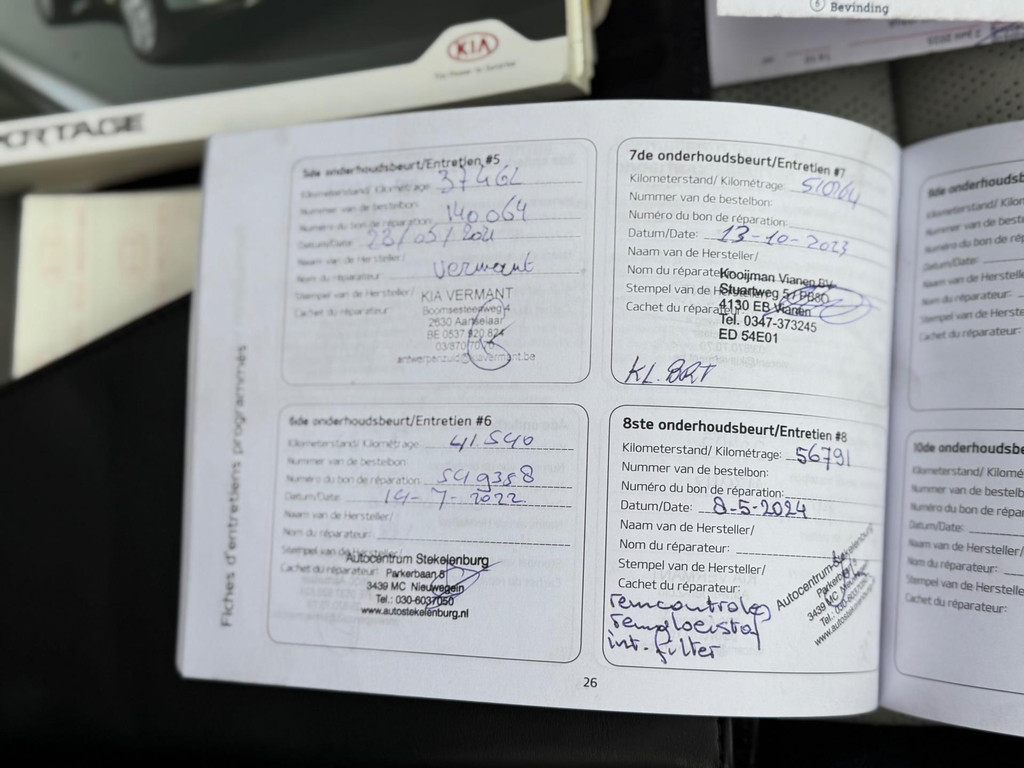 6 Bevinding
KIA
The Power to Surprise
PORTAGE
Fiches d'entretiens programmés
5de onderhoudsbeurt/Entretien #5
Kilometerstand/ Kilométrage: 37462
Nummer van de bestelbon:
Numéro du bon de réparation: 140064
Datum/Date: 28/05/2021
Naam van de Hersteller/
Nom du réparateur: Vermant
Stempel van de Hersteller/
Cachet du réparateur:
KIA VERMANT
Boomsesteenweg 4
2630 Aartselaar
BE 0537 920 824
antwerpenzuid@kiavermant.be
6de onderhoudsbeurt/Entretien #6
Kilometerstand/ Kilométrage: 41.540
Nummer van de bestelbon:
Numéro du bon de réparation: 549358
Datum/Date: 14-7-2022
Naam van de Hersteller/
Nom du réparateur:
Stempel van de Hersteller/
Cachet du réparateur:
Autocentrum Stekelenburg
Parkerbaan 8
3439 MC Nieuwegein
Tel.: 030-6037050
www.autostekelenburg.nl
7de onderhoudsbeurt/Entretien #7
Kilometerstand/ Kilométrage:
Nummer van de bestelbon:
Numéro du bon de réparation:
Datum/Date: 13-10-2023
Naam van de Hersteller/
Nom du réparateur:
Stempel van de Hersteller/
Cachet du réparateur:
Kooijman Vianen BV
Stuartweg 5 / PB80
4130 EB Vianen
Tel. 0347-373245
ED 54E01
KL. BRT
8ste onderhoudsbeurt/Entretien #8
Kilometerstand/ Kilométrage: 56791
Nummer van de bestelbon:
Numéro du bon de réparation:
Datum/Date: 8-5-2024
Naam van de Hersteller/
Nom du réparateur:
Stempel van de Hersteller/
Cachet du réparateur:
Autocentrum Stekelenburg
Parkerbaan
3439 MC Nieuwegein
Tel.: 030-603
www.autostekelenburg
remcontrole
remvloeistof
int. filter
26
9de onderhoudsb
Kilometerstand/ Kilomé
Nummer van de bestelb
Numéro du bon de rép
Datum/Date:
Naam van de Herstelle
Nom du réparateur:
Stempel van de Herstelle
Cachet du réparateur:
10de onderhoudsbe
Kilometerstand/ Kilomé
Nummer van de bestelb
Numéro du bon de répar
Datum/Date:
Naam van de Herstelle
Nom du réparateur:
Stempel van de Hersteller
Cachet du réparateur: